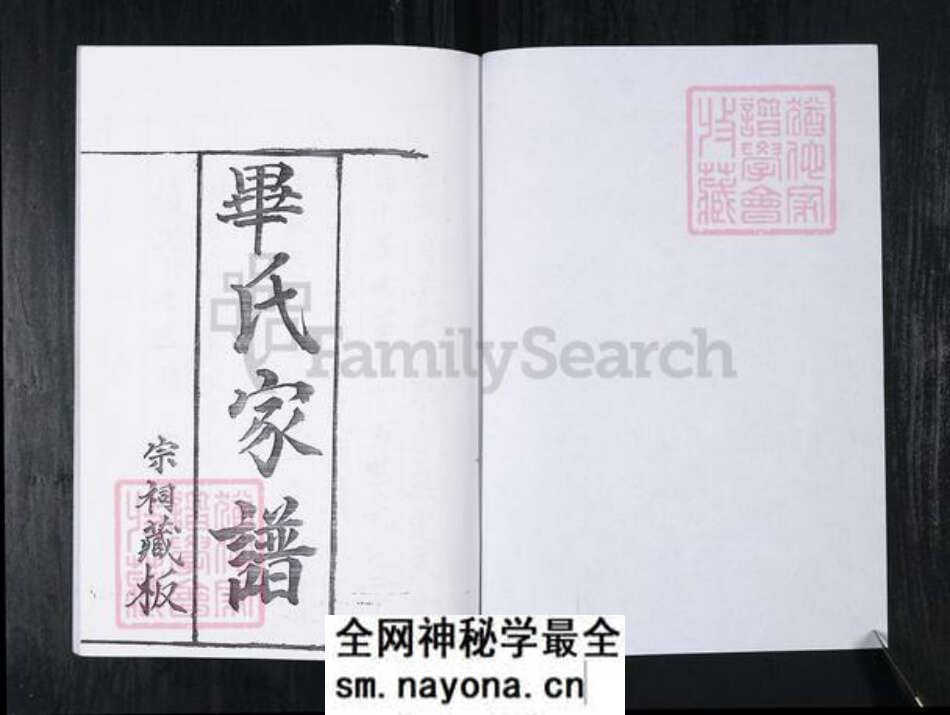 畢氏家譜
宗祠藏板
猶他家
譜學會
收藏
猶他家
譜學會
收藏
FamilySearch
全网神秘学最全
sm.nayona.cn